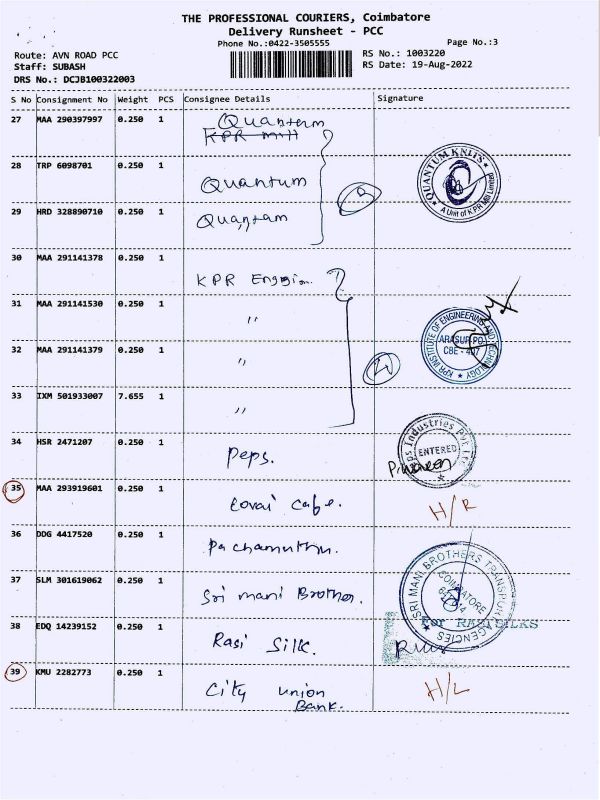 THE PROFESSIONAL COURIERS, Coimbatore
Delivery Runsheet - PCC
Phone No.:0422-3505555
Page No.:3
Route: AVN ROAD PCC
Staff: SUBASH
DRS No.: DCJB100322003
RS No.: 1003220
RS Date: 19-Aug-2022
S No Consignment No Weight PCS Consignee Details Signature
27 MAA 290397997 0.250 1 Quanterm
KPR Mill
28 TRP 6098701 0.250 1 Quantum
QUANTUM KNITS
A Unit of KPR Mill Limited
29 HRD 328890710 0.250 1 Quantam
30 MAA 291141378 0.250 1 KPR
31 MAA 291141530 0.250 1 "
KPR INSTITUTE OF ENGINEERING AND TECHNOLOGY
ARASUR PO
CBE - 407
32 MAA 291141379 0.250 1 "
33 IXM 501933007 7.655 1 "
34 HSR 2471207 0.250 1 Peps.
Peps Industries Pvt Ltd
ENTERED
35 MAA 293919601 0.250 1 Covai Cafe. H/R
36 DDG 4417520 0.250 1 Pachamuthu.
37 SLM 301619062 0.250 1 Sri mani Brother.
SRI MANI BROTHERS TRANSPORT AGENCIES
COIMBATORE
38 EDQ 14239152 0.250 1 Rasi Silk.
For RASI SILKS
39 KMU 2282773 0.250 1 City union H/L
Bank.